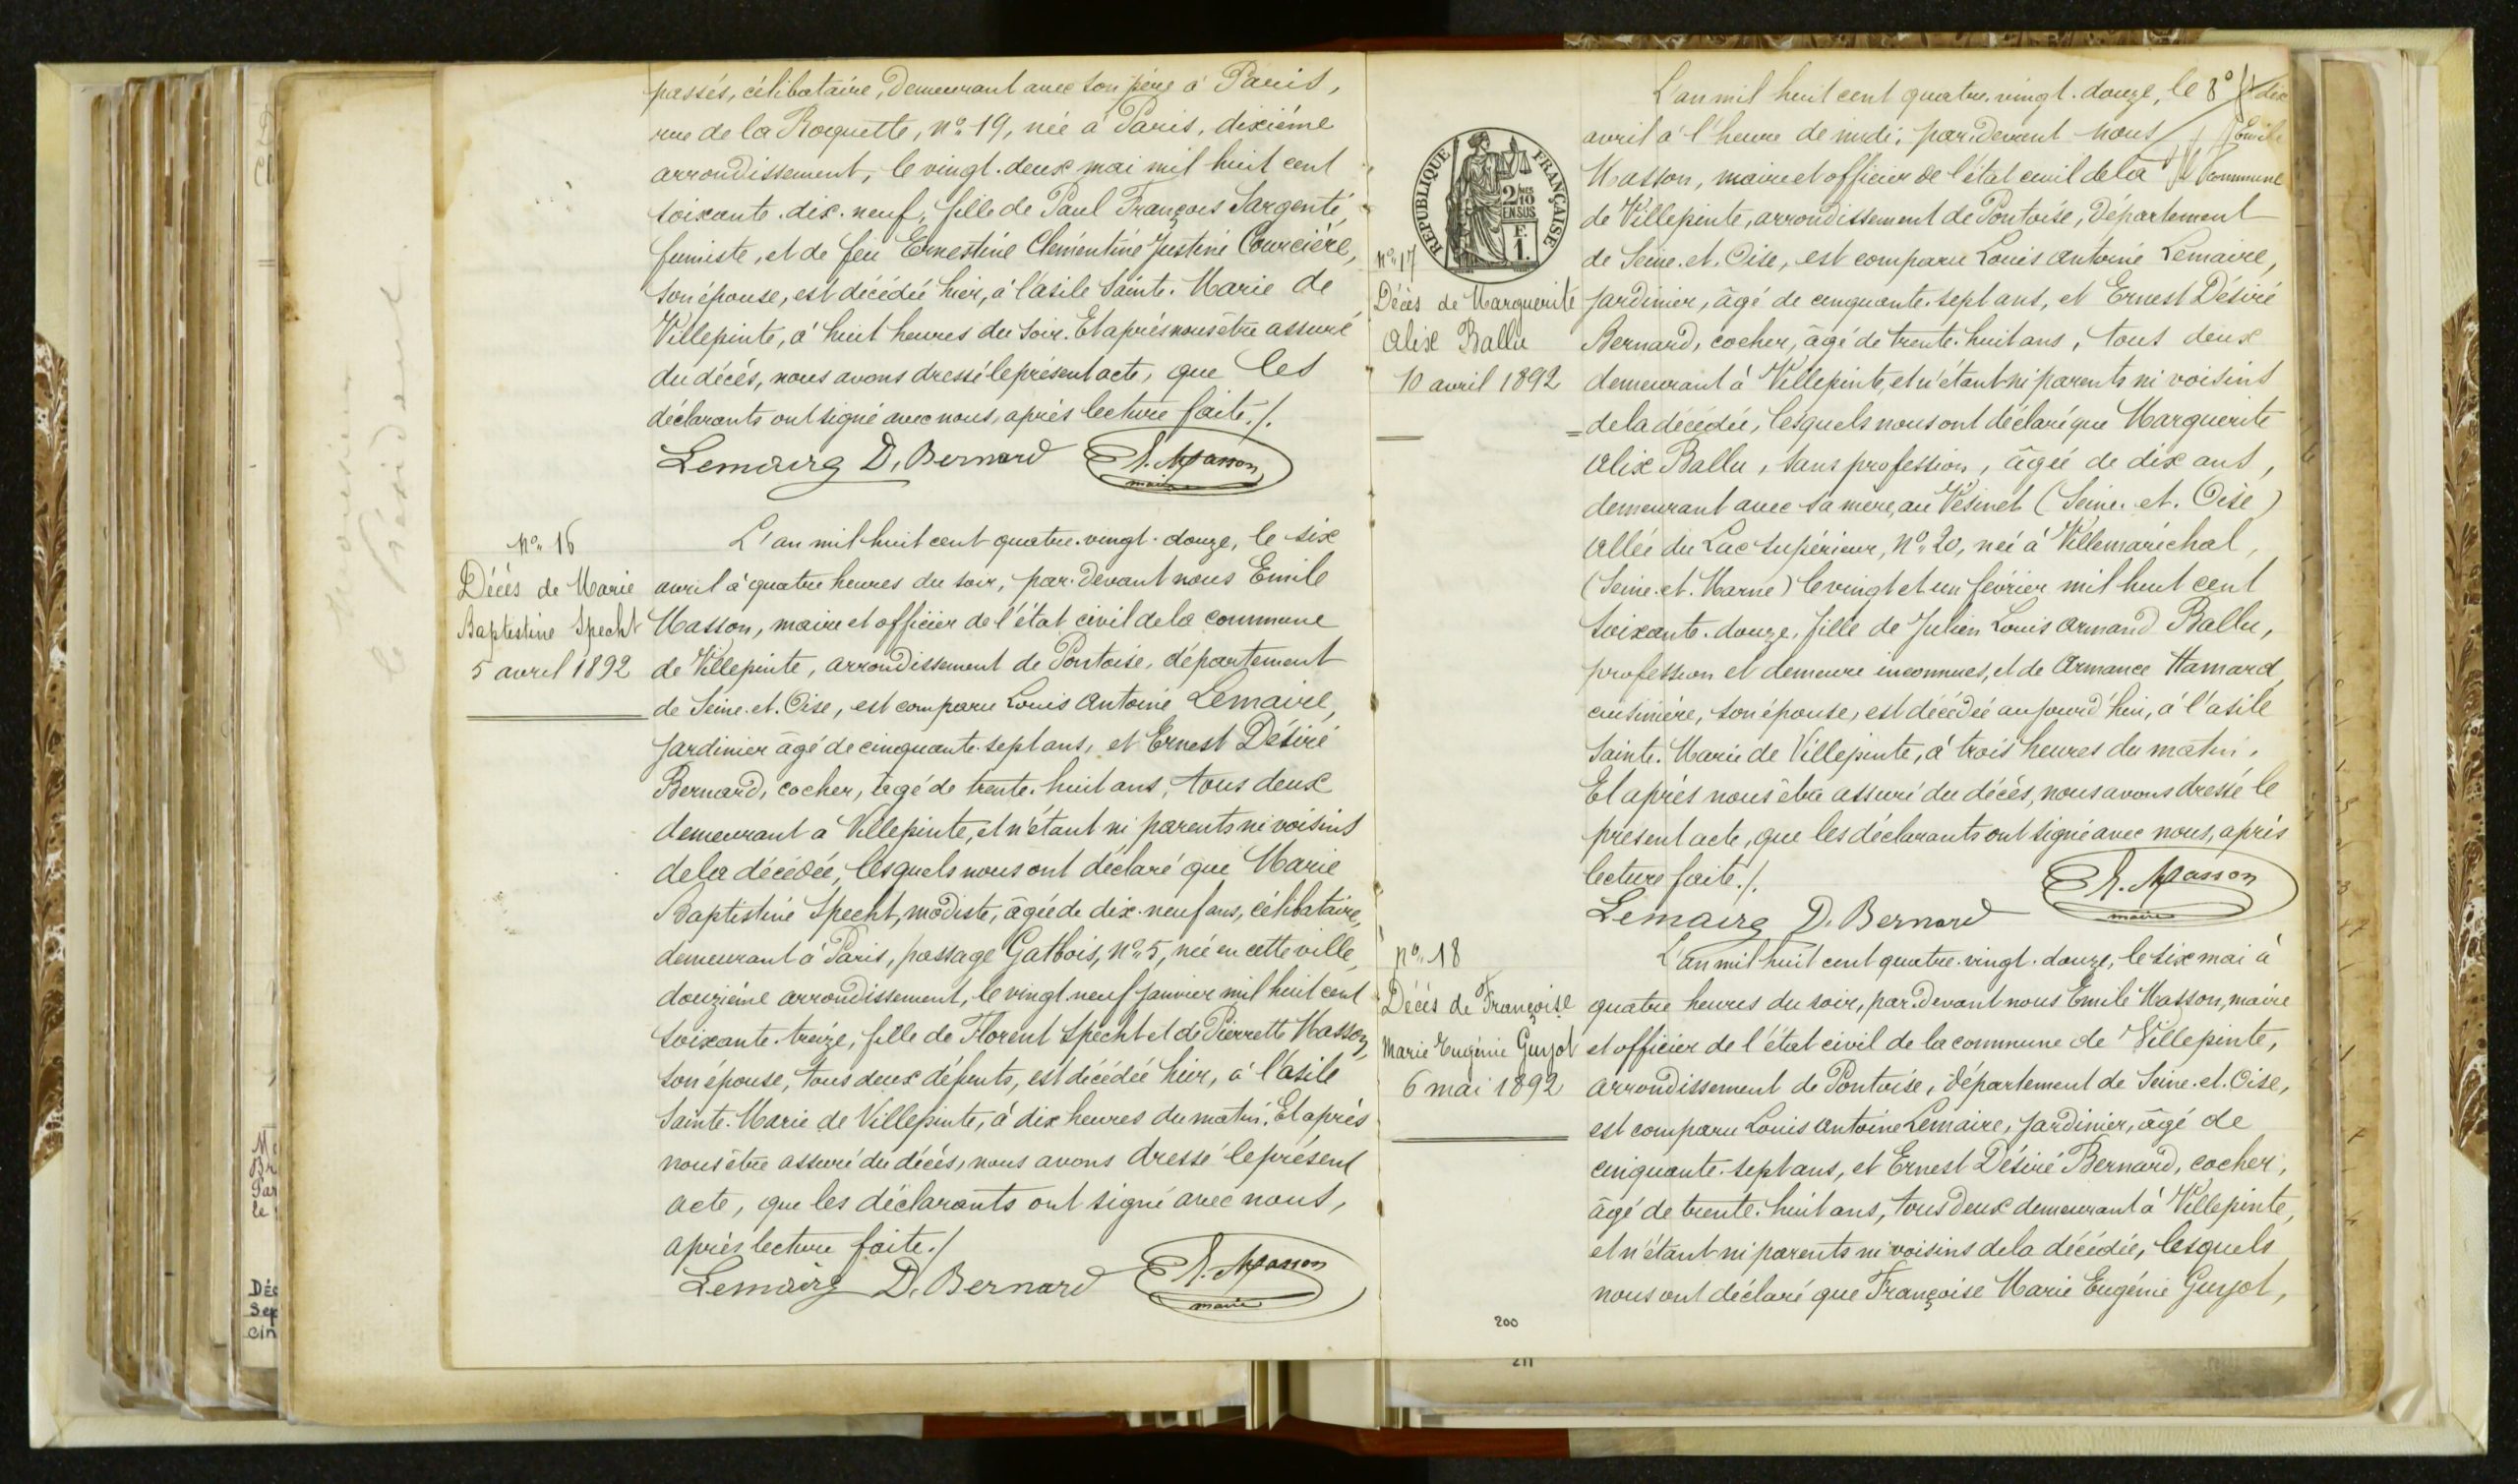 passés, célibataire, demeurant avec son père à Paris,
rue de la Roquette, nº 19, née à Paris, dixième
arrondissement, le vingt-deux mai mil huit cent
soixante-dix-neuf, fille de Paul François Sargenté,
fumiste, et de feu Ernestine Clémentine Justine Courcière,
son épouse, est décédée hier, à l'asile Sainte-Marie de
Villepinte, à huit heures du soir. Et après nous être assuré
du décès, nous avons dressé le présent acte, que les
déclarants ont signé avec nous, après lecture faite./.
Lemaire D. Bernard E. Masson
maire
Nº 16
Décès de Marie
Baptistine Specht
5 avril 1892
L'an mil huit cent quatre-vingt-douze, le six
avril à quatre heures du soir, par-devant nous Emile
Masson, maire et officier de l'état civil de la commune
de Villepinte, arrondissement de Pontoise, département
de Seine-et-Oise, est comparu Louis Antoine Lemaire,
jardinier âgé de cinquante-sept ans, et Ernest Désiré
Bernard, cocher, âgé de trente-huit ans, tous deux
demeurant à Villepinte, et n'étant ni parents ni voisins
de la décédée, lesquels nous ont déclaré que Marie
Baptistine Specht, modiste, âgée de dix-neuf ans, célibataire,
demeurant à Paris, passage Gatbois, nº 5, née en cette ville,
douzième arrondissement, le vingt-neuf janvier mil huit cent
soixante-treize, fille de Florent Specht et de Pierrette Masson,
son épouse, tous deux défunts, est décédée hier, à l'asile
Sainte-Marie de Villepinte, à dix heures du matin. Et après
nous être assuré du décès, nous avons dressé le présent
acte, que les déclarants ont signé avec nous,
après lecture faite./
Lemaire D. Bernard E. Masson
maire
REPUBLIQUE FRANÇAISE
2/10 EN SUS
F. 1.
Nº 17
Décès de Marguerite
Alix Ballu
10 avril 1892
L'an mil huit cent quatre-vingt-douze, le dix
avril à l'heure de midi, par-devant nous Emile
Masson, maire et officier de l'état civil de la commune
de Villepinte, arrondissement de Pontoise, Département
de Seine-et-Oise, est comparu Louis Antoine Lemaire,
jardinier, âgé de cinquante-sept ans, et Ernest Désiré
Bernard, cocher, âgé de trente-huit ans, tous deux
demeurant à Villepinte, et n'étant ni parents ni voisins
de la décédée, lesquels nous ont déclaré que Marguerite
Alix Ballu, sans profession, âgée de dix ans,
demeurant avec sa mère, au Vésinet (Seine-et-Oise)
allée du Lac supérieur, Nº 20, née à Villemaréchal,
(Seine-et-Marne) le vingt et un février mil huit cent
soixante-douze, fille de Julien Louis Armand Ballu,
profession et demeure inconnues, et de Armance Hamard,
cuisinière, son épouse, est décédée aujourd'hui, à l'asile
Sainte-Marie de Villepinte, à trois heures du matin.
Et après nous être assuré du décès, nous avons dressé le
présent acte, que les déclarants ont signé avec nous, après
lecture faite./.
Lemaire D. Bernard E. Masson
maire
nº 18
Décès de Françoise
Marie Eugénie Guyot
6 mai 1892
L'an mil huit cent quatre-vingt-douze, le six mai à
quatre heures du soir, par-devant nous Emile Masson, maire
et officier de l'état civil de la commune de Villepinte,
arrondissement de Pontoise, département de Seine-et-Oise,
est comparu Louis Antoine Lemaire, jardinier, âgé de
cinquante-sept ans, et Ernest Désiré Bernard, cocher,
âgé de trente-huit ans, tous deux demeurant à Villepinte,
et n'étant ni parents ni voisins de la décédée, lesquels
nous ont déclaré que Françoise Marie Eugénie Guyot,
200
211